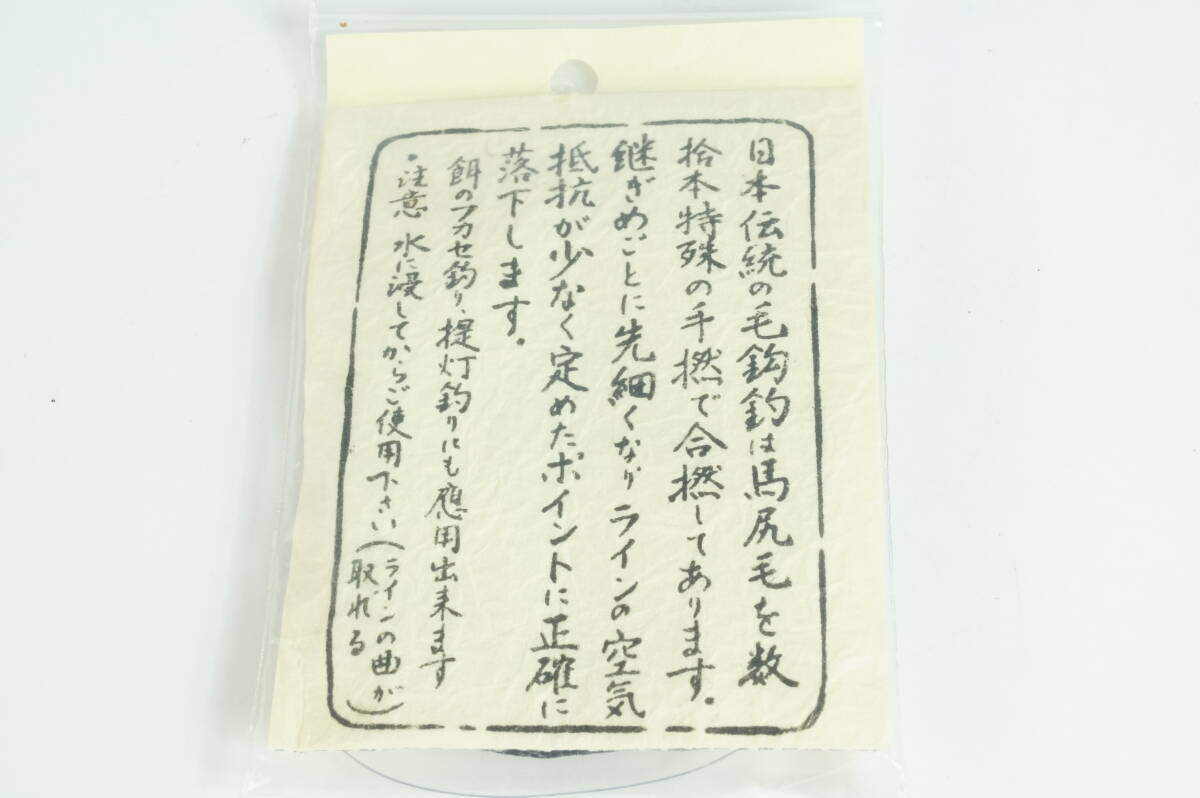 日本伝統の毛鈎釣は馬尻毛を数
拾本特殊の手撚で合撚してあります。
継ぎめごとに先細くなりラインの空気
抵抗が少なく定めたポイントに正確に
落下します。
餌のフカセ釣り、提灯釣りにも應用出来ます
・注意 水に浸してからご使用下さい(ラインの曲が
取れる)